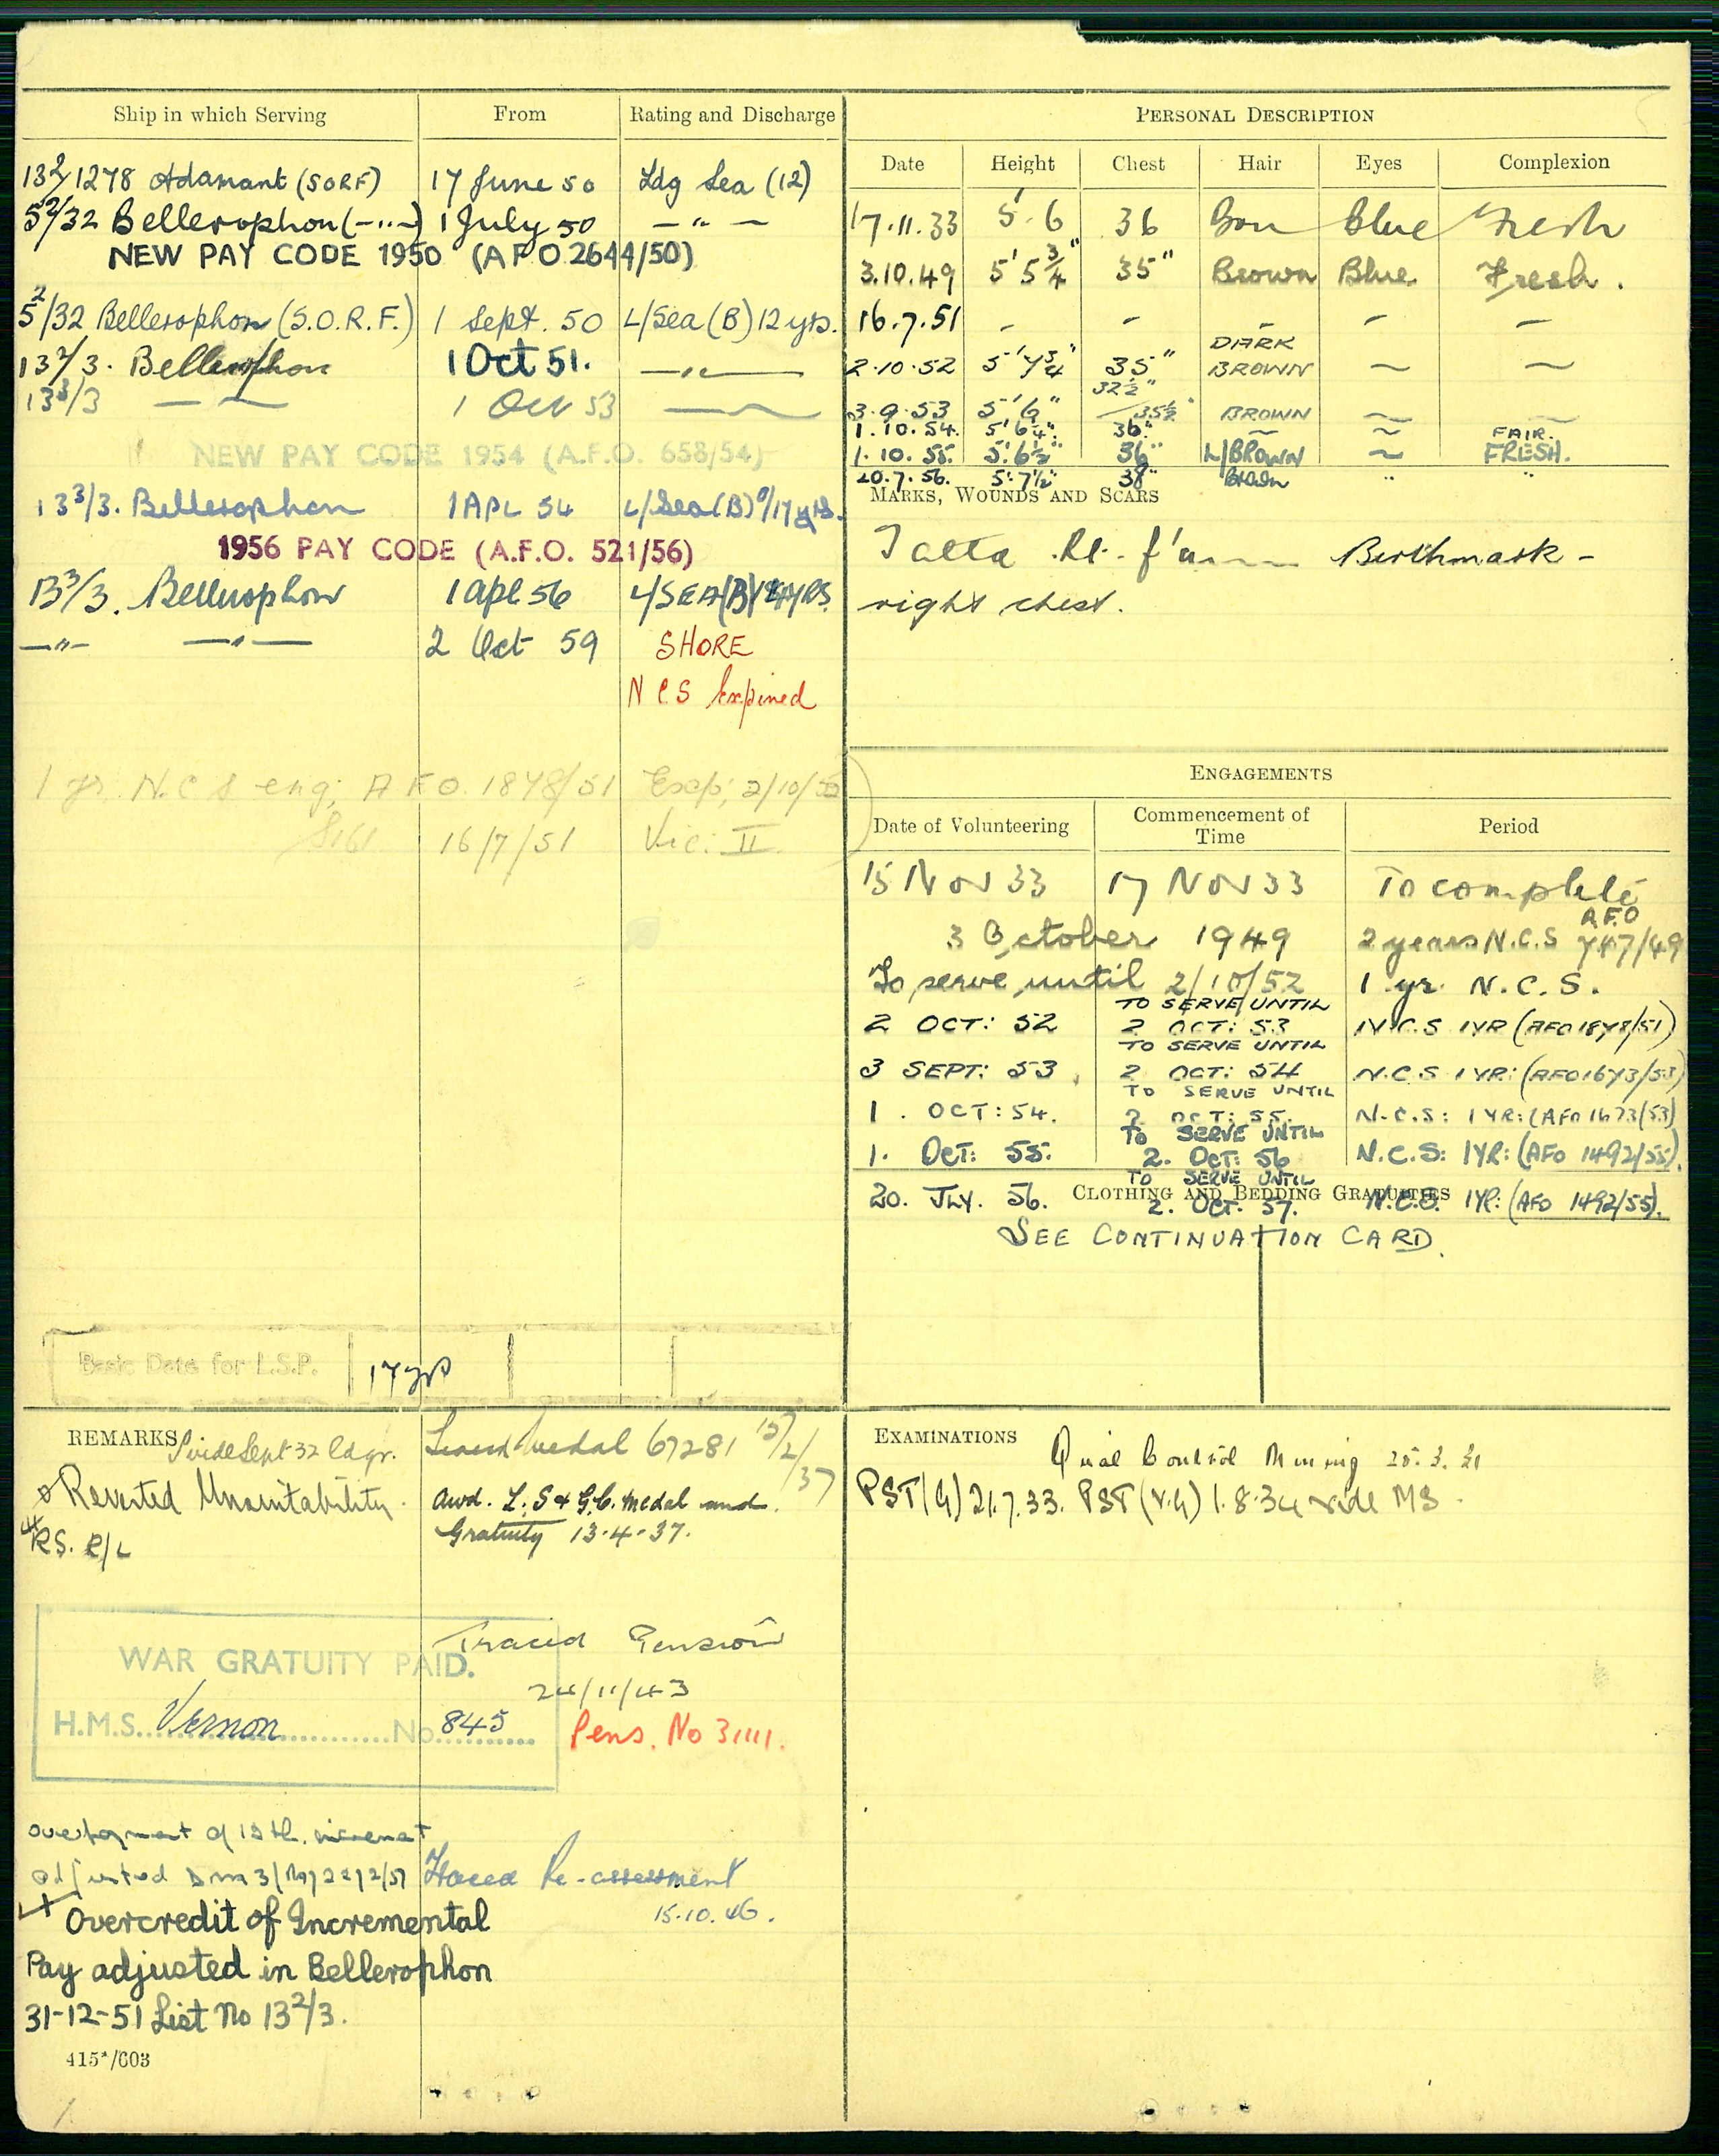 Ship in which Serving From Rating and Discharge
13²/1278 Adamant (SORF) 17 June 50 Ldg Sea (12)
5²/32 Bellerophon (-..-) 1 July 50 — " —
NEW PAY CODE 1950 (A F O 2644/50)
5²/32 Bellerophon (S.O.R.F.) 1 Sept. 50 L/Sea (B) 12 yrs.
13²/3. Bellerophon 1 Oct 51. — " —
13³/3 — — 1 Oct 53 — —
NEW PAY CODE 1954 (A.F.O. 658/54)
13³/3. Bellerophon 1 APL 54 L/Sea (B) 0/17 yrs.
1956 PAY CODE (A.F.O. 521/56)
13³/3. Bellerophon 1 Apl 56 L/SEA (B) YRS.
— " — — " — 2 Oct 59 SHORE
N C S Expired
1 yr. N.C.S eng; A F O. 1878/51 Exp; 2/10/52
S161 16/7/51 Vic: II
Basic Date for L.S.P.
PERSONAL DESCRIPTION
Date Height Chest Hair Eyes Complexion
17.11.33 5' 6 36 Brn Blue Fresh
3.10.49 5' 5¾" 35" Brown Blue Fresh.
16.7.51 – – – – –
DARK
2.10.52 5' 7¾" 35" BROWN ~ ~
32½"
3.9.53 5' 6" 35½" BROWN ~ ~
1.10.54. 5' 6¼" 36" ~ ~ FAIR.
1.10.55. 5' 6½" 36" L/BROWN ~ FRESH.
20.7.56. 5' 7½" 38" Brown " "
MARKS, WOUNDS AND SCARS
Tatta Rt. f'arm Birthmark -
right chest.
ENGAGEMENTS
Date of Volunteering Commencement of Time Period
15 Nov 33 17 Nov 33 To complete
3 October 1949 2 years N.C.S A.F.O 747/49
To serve until 2/10/52 1 yr. N.C.S.
TO SERVE UNTIL
2 OCT: 52 2 OCT: 53 N.C.S 1 YR (AFO 1878/51)
TO SERVE UNTIL
3 SEPT: 53 2 OCT: 54 N.C.S 1 YR: (AFO 1673/53)
TO SERVE UNTIL
1. OCT: 54. 2 OCT: 55. N.C.S: 1 YR: (AFO 1673/53)
TO SERVE UNTIL
1. OCT: 55. 2. OCT: 56 N.C.S: 1YR: (AFO 1492/55).
TO SERVE UNTIL
20. JLY. 56. 2. OCT. 57. N.C.S. 1YR: (AFO 1492/55).
CLOTHING AND BEDDING GRATUITIES
SEE CONTINUATION CARD.
REMARKS Sept 32 ldgr.
Reverted Unsuitability.
RS. R/L
Traced medal 67281 15/2/37
Awd. L.S & G.C. medal and
Gratuity 13.4.37.
WAR GRATUITY PAID.
H.M.S. Vernon No. 845
Traced Pension
24/11/43
Pens. No 31111.
Overpayment of 12th. increment
adjusted
Traced Re-assessment
15.10.46.
Overcredit of Incremental
Pay adjusted in Bellerophon
31-12-51 List No 13²/3.
415*/603
EXAMINATIONS
Qual Control Mining
PST (G) 21.7.33. PST (V.G) 1.8.34 vide MS.